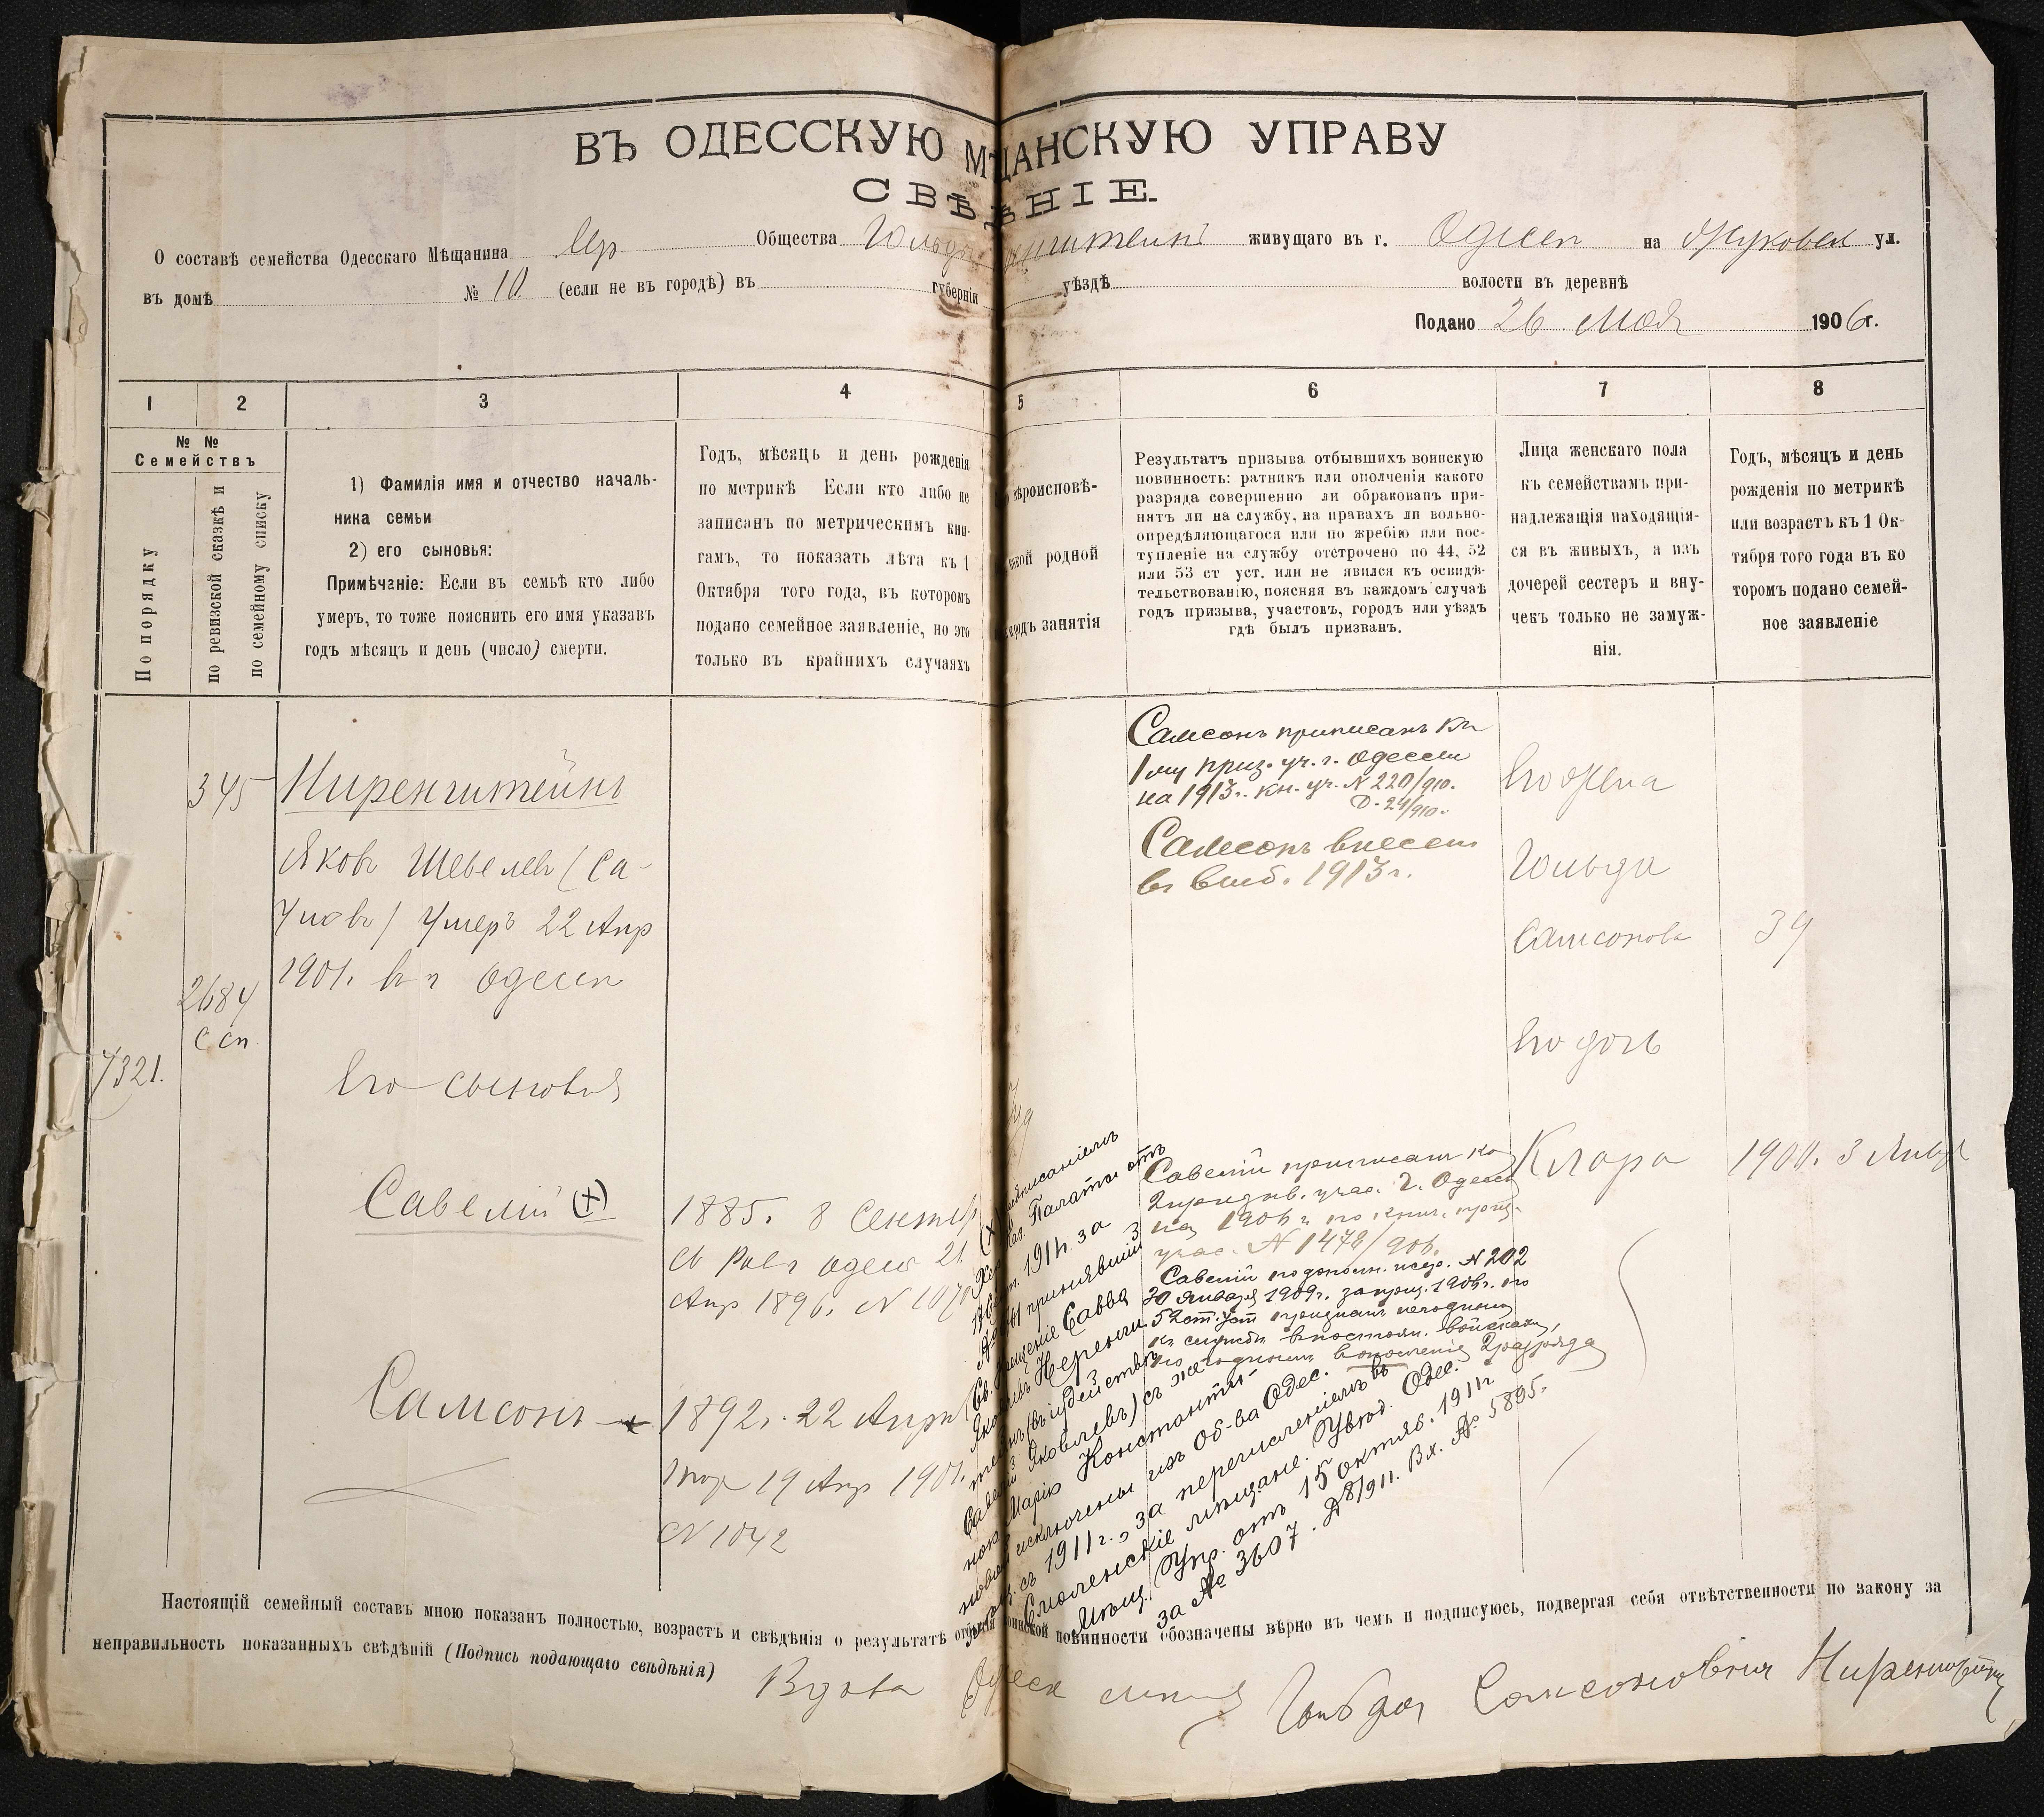 ВЪ ОДЕССКУЮ МѢЩАНСКУЮ УПРАВУ
СВѢДѢНІЕ.
О составѣ семейства Одесскаго Мѣщанина Евр Общества живущаго въ г. Одессѣ на Жуковск ул.
въ домѣ № 10 (если не въ городѣ) въ губерніи уѣздѣ волости въ деревнѣ
Подано 26 Мая 1906 г.
1 2 3 4 5 6 7 8
№ №
Семействъ
По порядку
по ревизской сказкѣ и
по семейному списку
1) Фамилія имя и отчество началь-
ника семьи
2) его сыновья:
Примѣчаніе: Если въ семьѣ кто либо
умеръ, то тоже пояснить его имя указавъ
годъ мѣсяцъ и день (число) смерти.
Годъ, мѣсяць и день рожденія
по метрикѣ Если кто либо не
записанъ по метрическимъ кни-
гамъ, то показать лѣта къ 1
Октября того года, въ которомъ
подано семейное заявленіе, но это
только въ крайнихъ случаяхъ
вѣроисповѣ-
родной
занятія
Результатъ призыва отбывшихъ воинскую
повинность: ратникъ или ополченія какого
разряда совершенно ли обракованъ при-
нятъ ли на службу, на правахъ ли вольно-
опредѣляющагося или по жребію или пос-
тупленіе на службу отсрочено по 44, 52
или 53 ст уст. или не явился къ освидѣ-
тельствованію, поясняя въ каждомъ случаѣ
годъ призыва, участокъ, городъ или уѣздъ
гдѣ былъ призванъ.
Лица женскаго пола
къ семействамъ при-
надлежащія находящія-
ся въ живыхъ, а изъ
дочерей сестеръ и вну-
чекъ только не замуж-
нія.
Годъ, мѣсяцъ и день
рожденія по метрикѣ
или возрастъ къ 1 Ок-
тября того года въ ко
торомъ подано семей-
ное заявленіе
345
2684
С сп.
7321.
Ниренштейнъ
Яковъ Шевелевъ (Са-
Умеръ 22 Апр
1901. въ г Одессѣ
Его сыновья
Савелій (+)
1885. 8 Сентяб
Равъ Одесс 21
Апр 1896. N 1070
Самсонъ
1892г. 22 Апрѣл
19 Апр 1901.
N 1042
Самсонъ приписанъ къ
1 му приз. уч. г. Одессы
на 1913г. кн. уч. N 220/910.
Д. 24/910.
Самсонъ внесенъ
въ 1913г.
Савелій приписанъ ко
2 призыв. учас. г. Одессы
на 1906 г по книг. приз.
учас. N 1478/906.
Савелій N 202
30 Января 1909г. за приз. 1906г. по
52 ст. Уст признанъ негоднымъ
къ службѣ въ постоян. войскахъ,
но годнымъ въ ополченіе 2 разряда
(X) Предписаніемъ
Хер. Каз. Палаты отъ
1911г. за
N принявшій
Св. Крещеніе Савва
Савелій Яковлевъ) съ же-
ною Марію Константи-
новой исключены изъ Об-ва Одес.
съ 1911 г., за перечисленіемъ въ
Смоленскіе мѣщане. Увѣд. Одес.
Мѣщ. Упр. отъ 15 октяб. 1911 г.
за № 3607. Д 8/911. Вх. № 5895.
Его жена
Гольда
Самсонова 39
Его дочь
Клара 1900. 3 Январ
Настоящій семейный составъ мною показанъ полностью, возрастъ и свѣдѣнія о результатѣ отбытія воинской повинности обозначены вѣрно въ чемъ и подписуюсь, подвергая себя отвѣтственности по закону за
неправильность показанныхъ свѣдѣній (Подпись подающаго свѣдѣнія) Вдова Одеск Гольда Самсоновна Ниренштейн